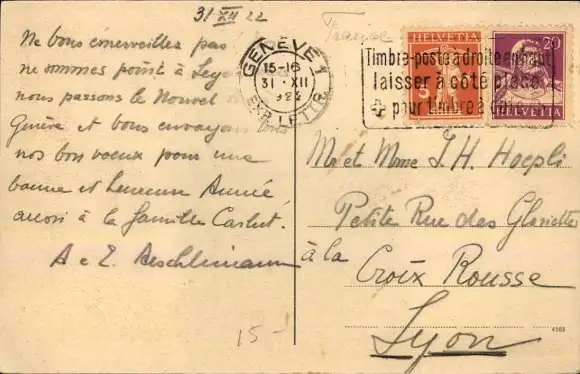 31 XII 22
France
Ne vous émerveillez pas
ne sommes point à
nous passons le Nouvel
Genève et vous envoyons
nos bon voeux pour une
bonne et heureuse Année
aussi à la famille
A e E. Aeschlimann
15-
GENÈVE 1
15-16
31·XII
1922
EXP. LETTR.
Timbre-poste à droite en haut
laisser à côté place
pour timbre à date
HELVETIA
5
20
HELVETIA
Mr et Mme J. H. Hoepli
Petite Rue des Gloriettes
à la
Croix Rousse
Lyon